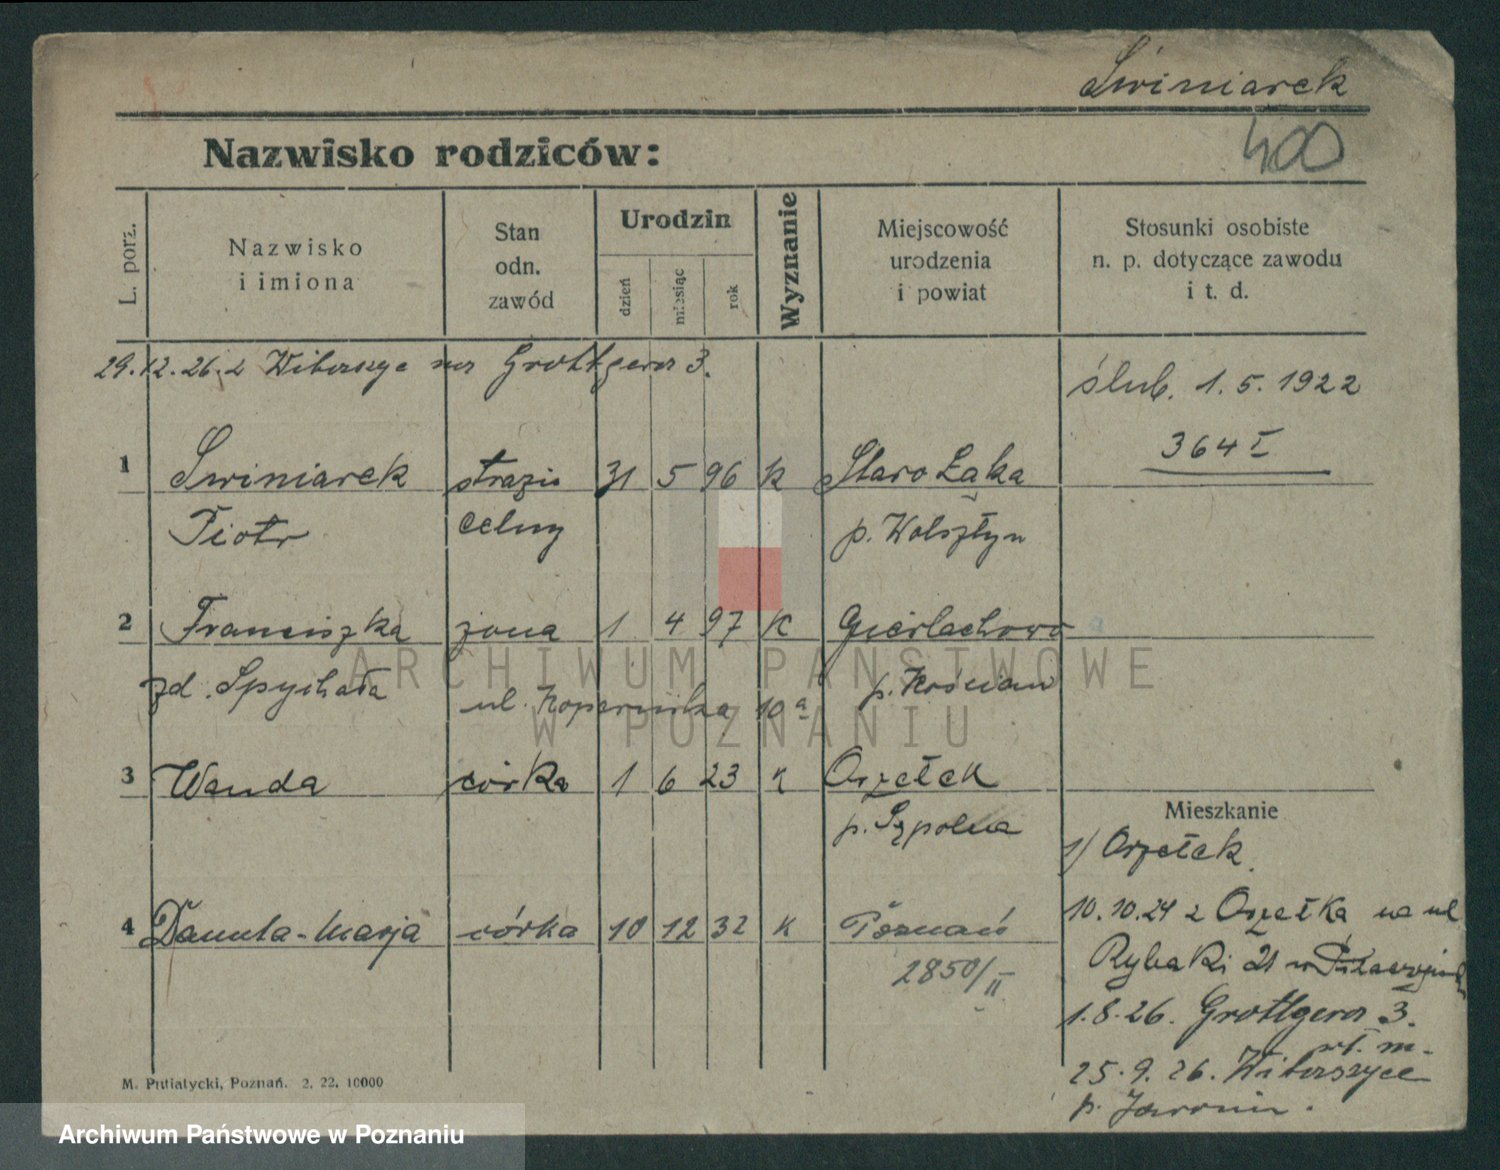 Świniarek
400
Nazwisko rodziców:
L. porz.
Nazwisko
i imiona
Stan
odn.
zawód
Urodzin
dzień
miesiąc
rok
Wyznanie
Miejscowość
urodzenia
i powiat
Stosunki osobiste
n. p. dotyczące zawodu
i t. d.
29.12.26. z Witaszyc na Grottgera 3.
ślub. 1.5.1922
364 I
1 Świniarek strażn 31 5 96 k Staro Łąka
Piotr celny p. Wolsztyn
2 Franciszka żona 1 4 97 K Gierlachowo
zd. Spychała ul. Kopernika 10 a p. Kościan
3 Wanda córka 1 6 23 K Orzełek
p. Sępolna
4 Danuta-Marja córka 10 12 32 K Poznań
2850/II
Mieszkanie
1/ Orzełek
10.10.24 z Orzełka na ul
Rybaki 21 w
1.8.26. Grottgera 3.
wł. m.
25.9.26. Witaszyce
p. Jarocin.
M. Putiatycki, Poznań. 2. 22. 10000
ARCHIWUM PAŃSTWOWE
W POZNANIU
Archiwum Państwowe w Poznaniu